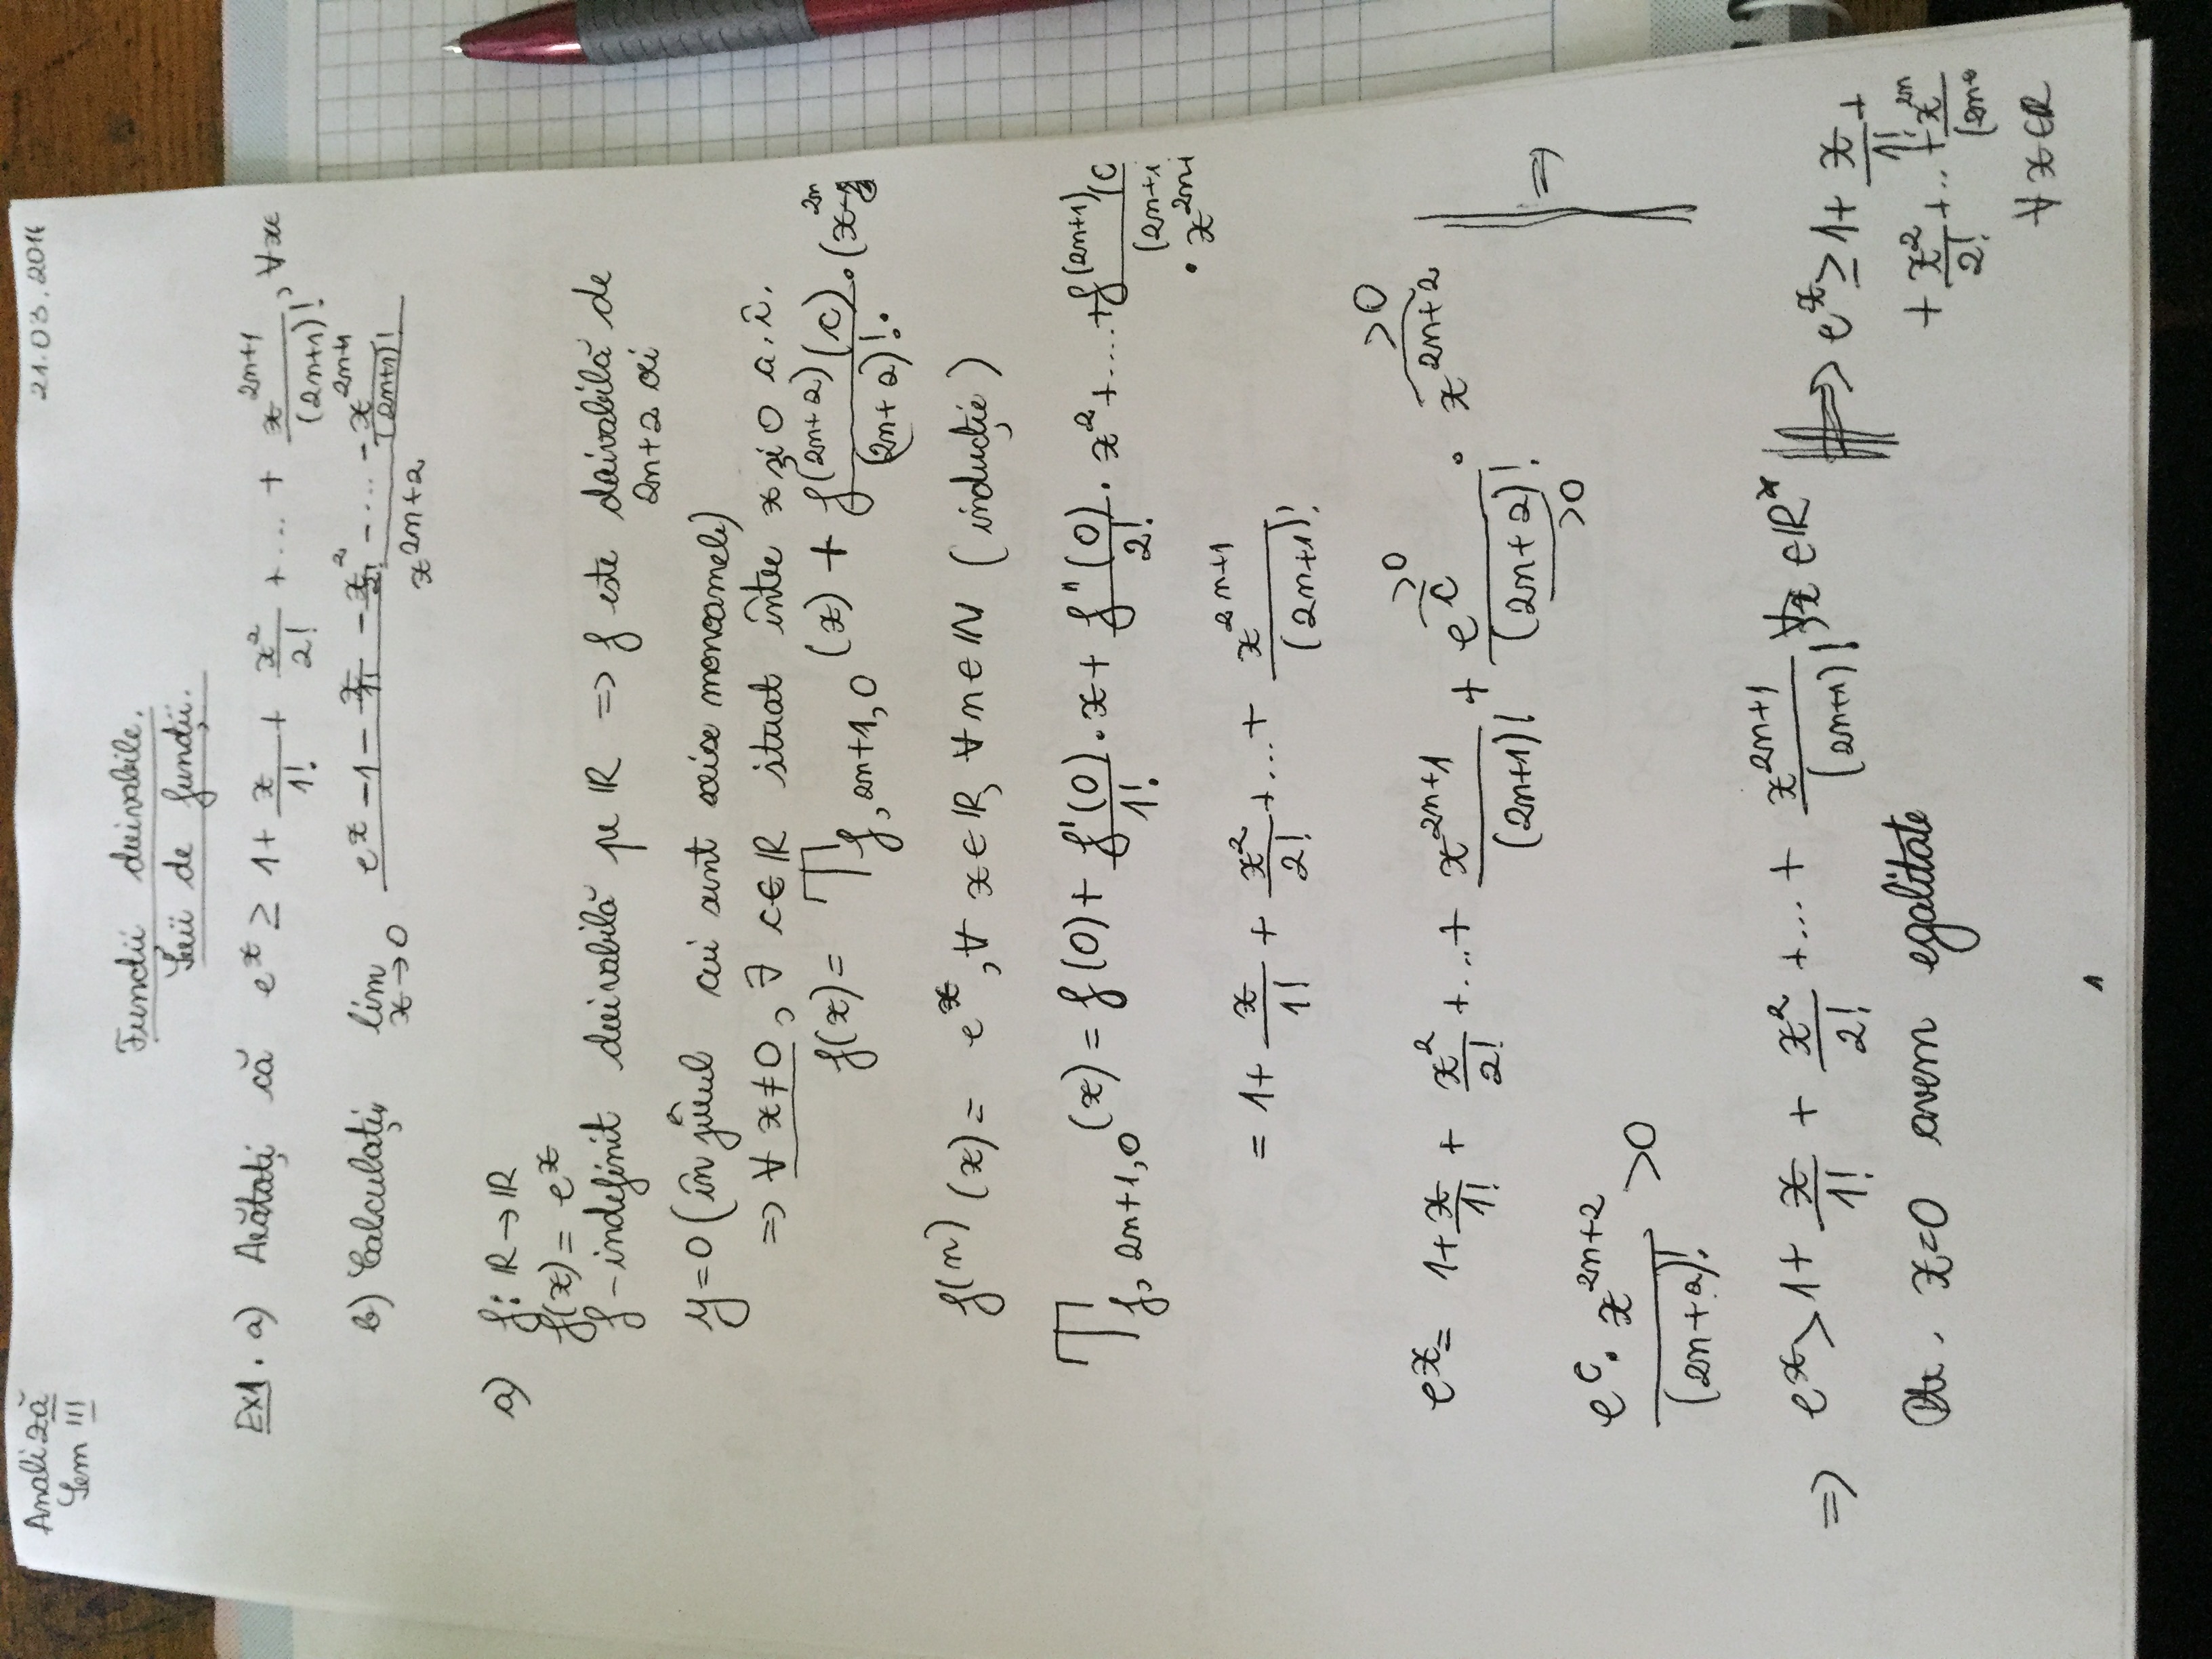 Analiză
Sem III
21.03.2016
Funcții derivabile.
Serii de funcții.
Ex1. a) Arătați că e^x ≥ 1 + x/1! + x^2/2! + ... + x^{2n+1}/(2n+1)!, ∀x
b) Calculați lim_{x→0} (e^x - 1 - x/1! - x^2/2! - ... - x^{2n+1}/(2n+1)!)/x^{2n+2}
a) f: ℝ→ℝ
f(x) = e^x
f - indefinit derivabilă pe ℝ => f este derivabilă de
2n+2 ori
y=0 (în jurul cui sunt scise monoamele)
=> ∀ x≠0, ∃ c∈ℝ situat între x și 0 a.î.
f(x) = T_{f,2n+1,0}(x) + f^{(2n+2)}(c)/(2n+2)! · (x-y)^{2n
f^{(n)}(x) = e^x, ∀ x∈ℝ, ∀ n∈ℕ (inducție)
T_{f,2n+1,0}(x) = f(0) + f'(0)/1! · x + f''(0)/2! · x^2 + .... + f^{(2n+1)}(c/(2n+1 · x^{2n+1}
= 1 + x/1! + x^2/2! + ... + x^{2n+1}/(2n+1)!
e^x = 1 + x/1! + x^2/2! + ... + x^{2n+1}/(2n+1)! + e^c/(2n+2)! · x^{2n+2} =>
>0 >0
>0
e^c · x^{2n+2}/(2n+2)! > 0
=> e^x > 1 + x/1! + x^2/2! + ... + x^{2n+1}/(2n+1)! ∀x∈ℝ* => e^x ≥ 1 + x/1! +
+ x^2/2! + ... + x^{2n/(2n+
∀ x∈ℝ
x=0 avem egalitate
1